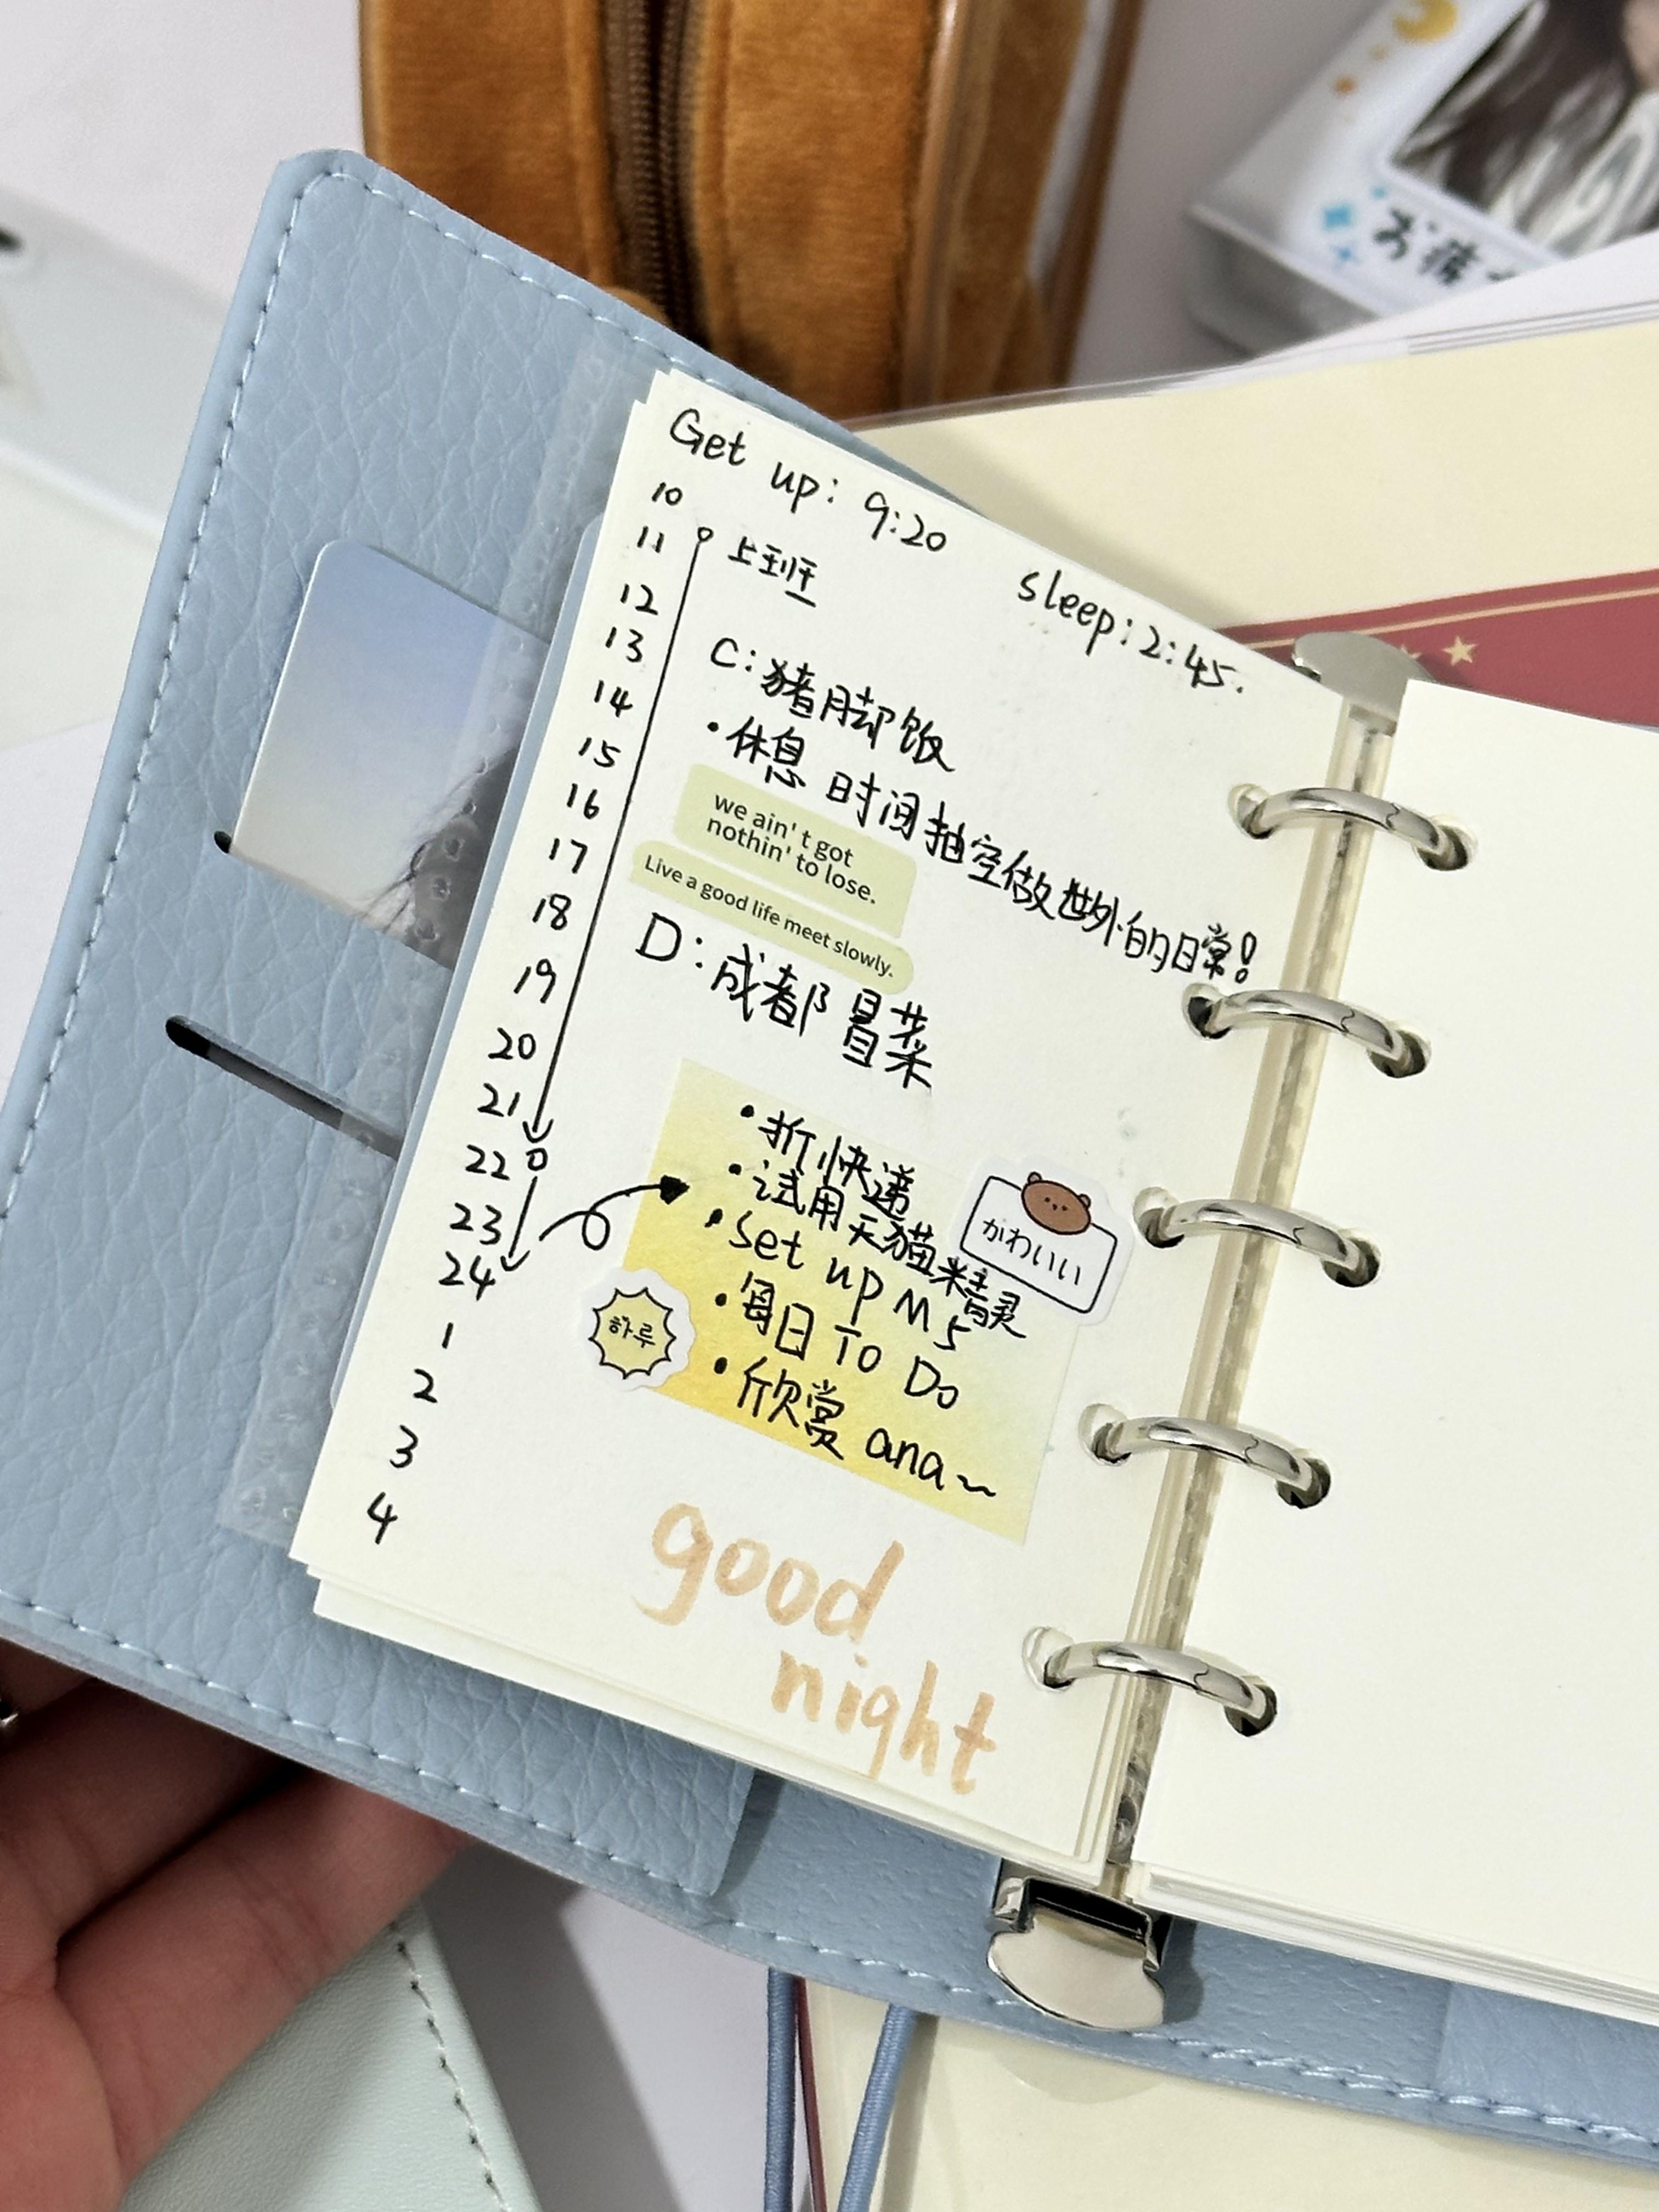 お疲
Get up: 9:20
sleep: 2:45.
10
11
上班
12
13
C: 猪脚饭
14
•休息时间抽空做世外的日常!
15
16
we ain't got
nothin' to lose.
17
Live a good life meet slowly.
18
D: 成都冒菜
19
20
21
22
23
24
1
2
3
4
•折快递
•试用天猫精灵
•Set up M5
•每日 To Do
•欣赏 ana~
かわいい
하루
good
night